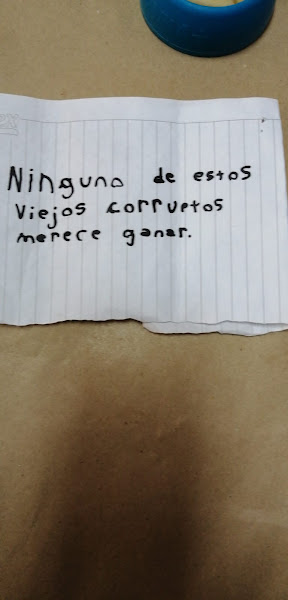 Ninguno de estos
viejos corruptos
merece ganar.